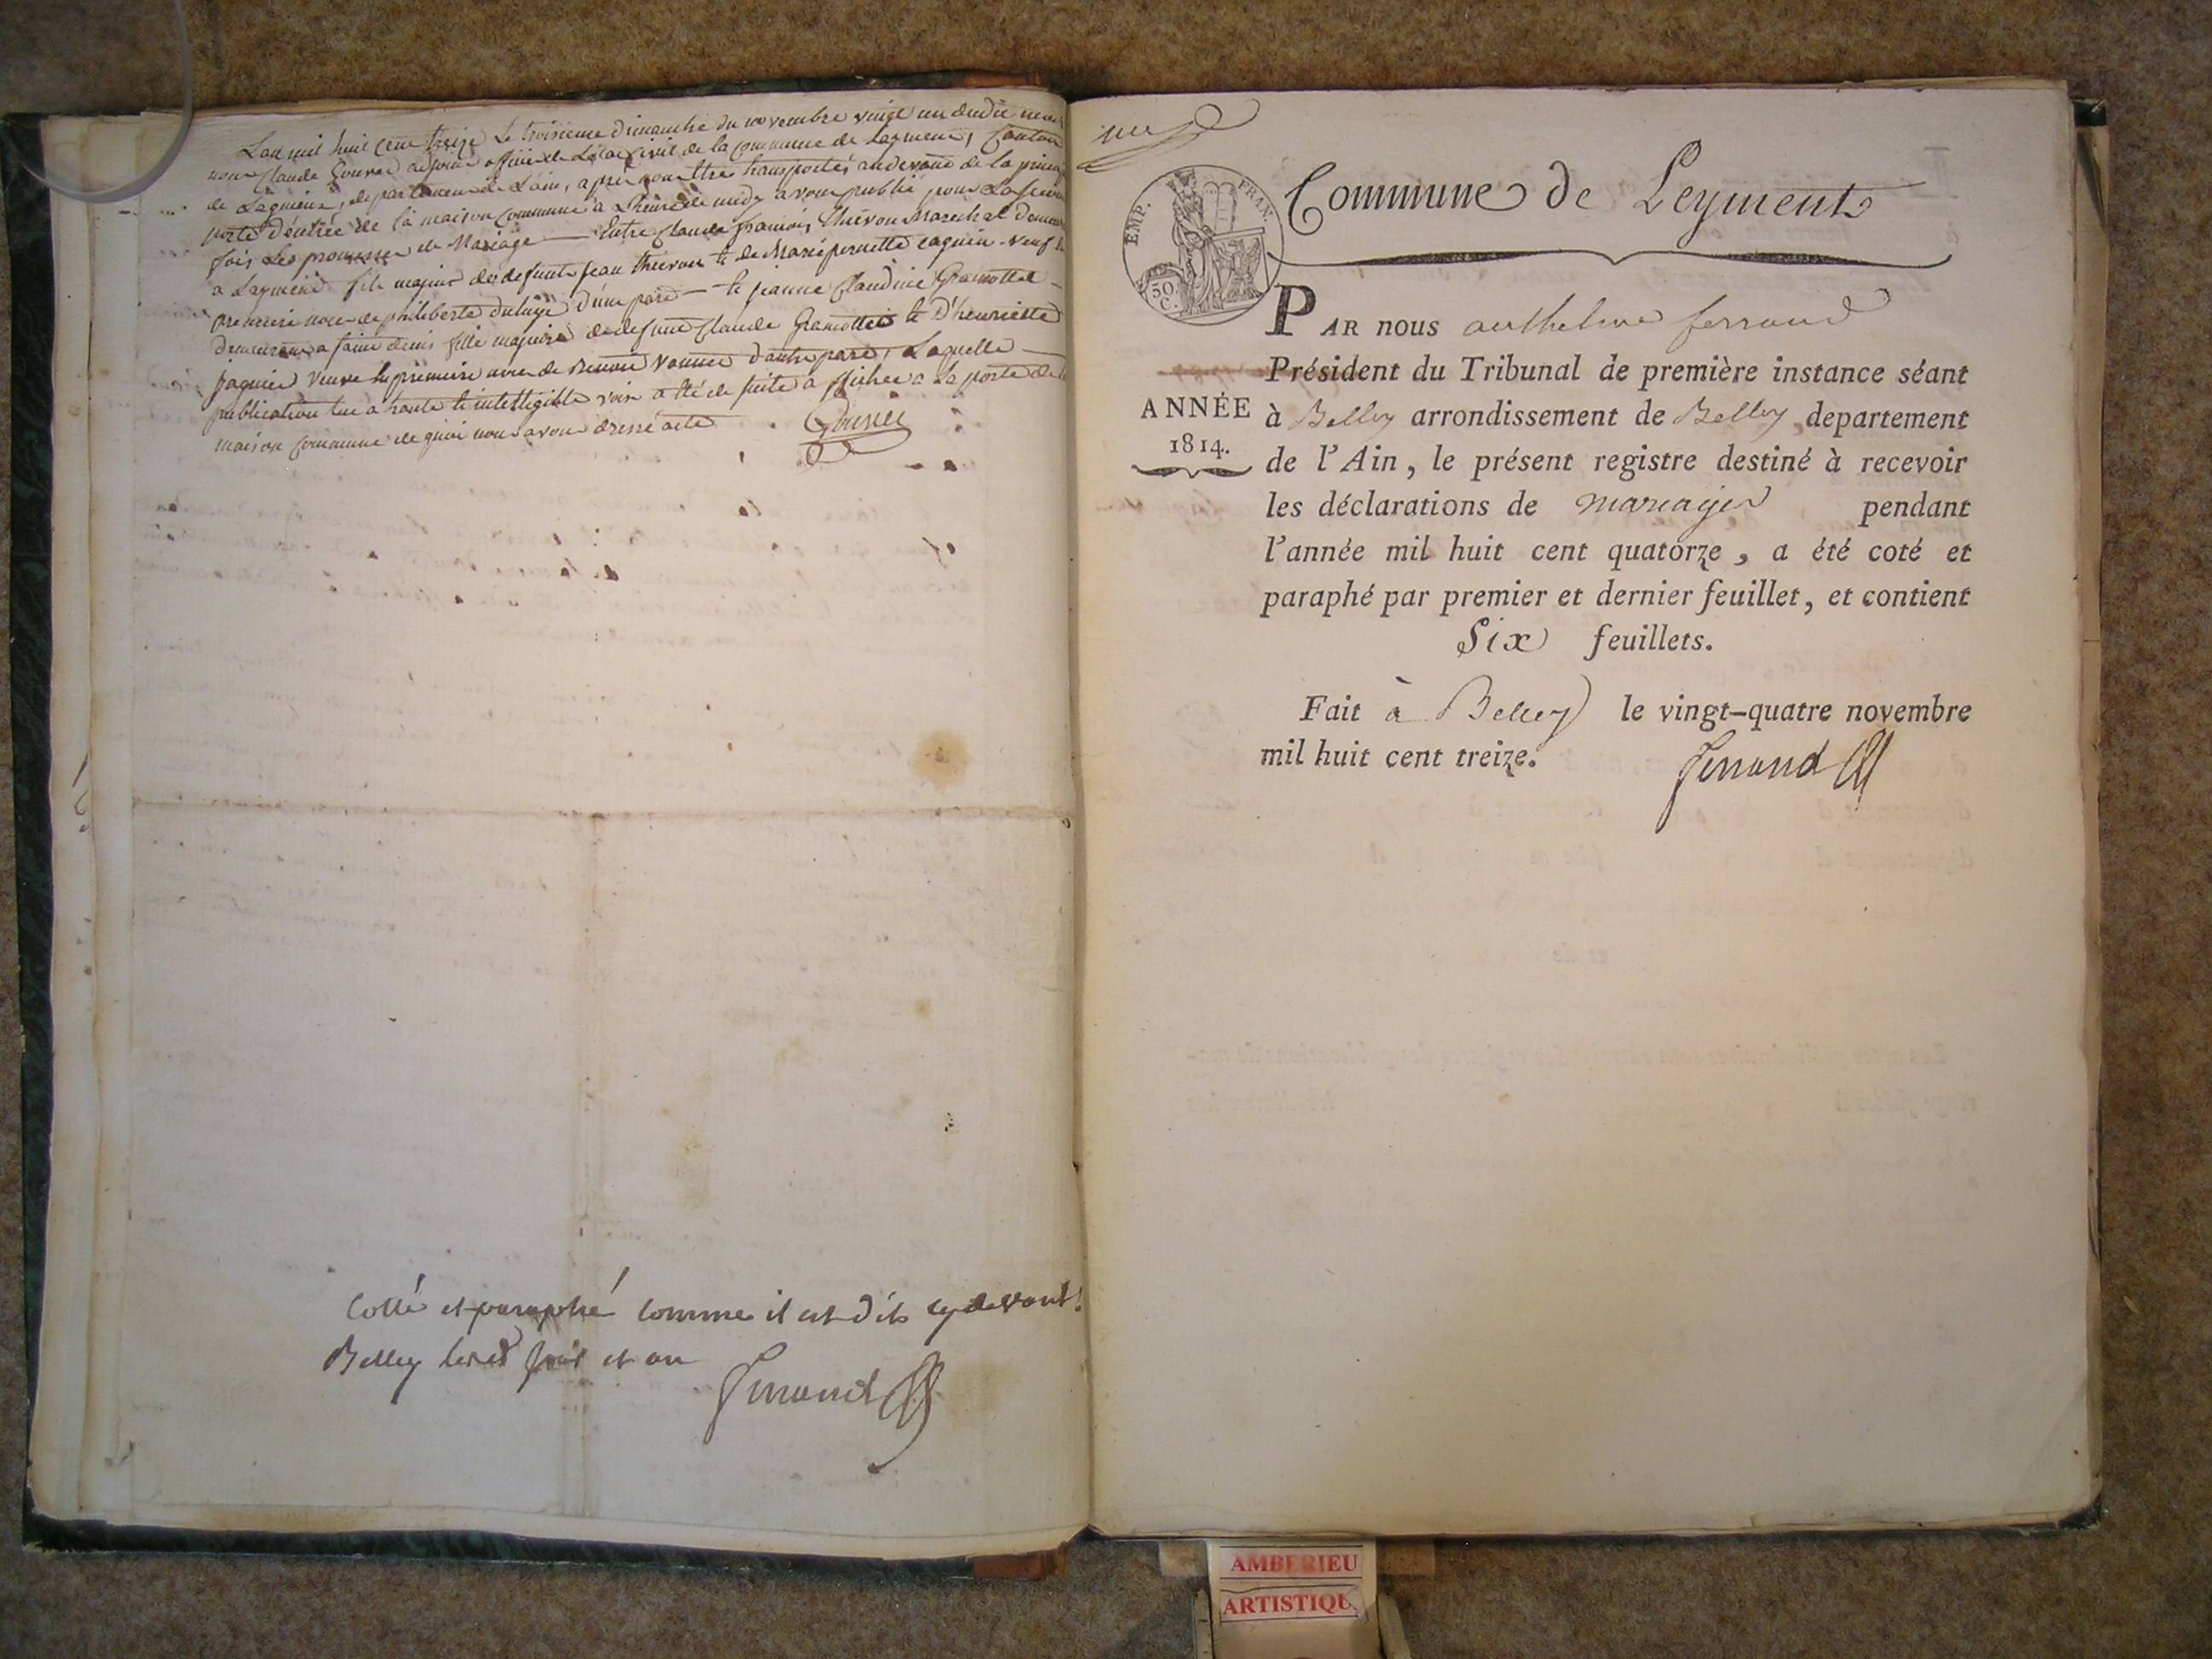 Lan mil huit cent treize le troisieme dimanche du novembre vingt un dudit mois
nous Claude Gouver adjoint officier de Létat civil de la commune de Layment, Canton
de Lagnieux, departement de Lain, apres nous être transportés audevant de la
porte d'entrée de la maison commune a Lheure de midy avons publié pour La
fois les promesse de Mariage — Entre Claude francois thievon Marechal
a Layment fils majeur de defunt jean thievon et de Marie pernette veuf
premiere noce de philiberte d'une part — et jeanne Claudine Gramottet
demeurant a saint denis fille majeure de defunt Claude Gramottet et D'henriette
jaquier veuve en premiere noce de Benoit d'autre part, Laquelle —
publication lue a haute et intelligible voix a été de suite affichee a La porte de
maison commune de quoi nous avons dressé acte
Cotté et paraphé comme il est dit cy devant.
Belley lesd jour et an
Ferrand
EMP. FRAN.
50 C.
Commune de Leyment
PAR nous anthelme ferrand
Président du Tribunal de première instance séant
ANNÉE
1814.
à Belley arrondissement de Belley, departement
de l'Ain, le présent registre destiné à recevoir
les déclarations de mariages pendant
l'année mil huit cent quatorze, a été coté et
paraphé par premier et dernier feuillet, et contient
Six feuillets.
Fait à Belley le vingt-quatre novembre
mil huit cent treize.
Ferrand
AMBERIEU
ARTISTIQU